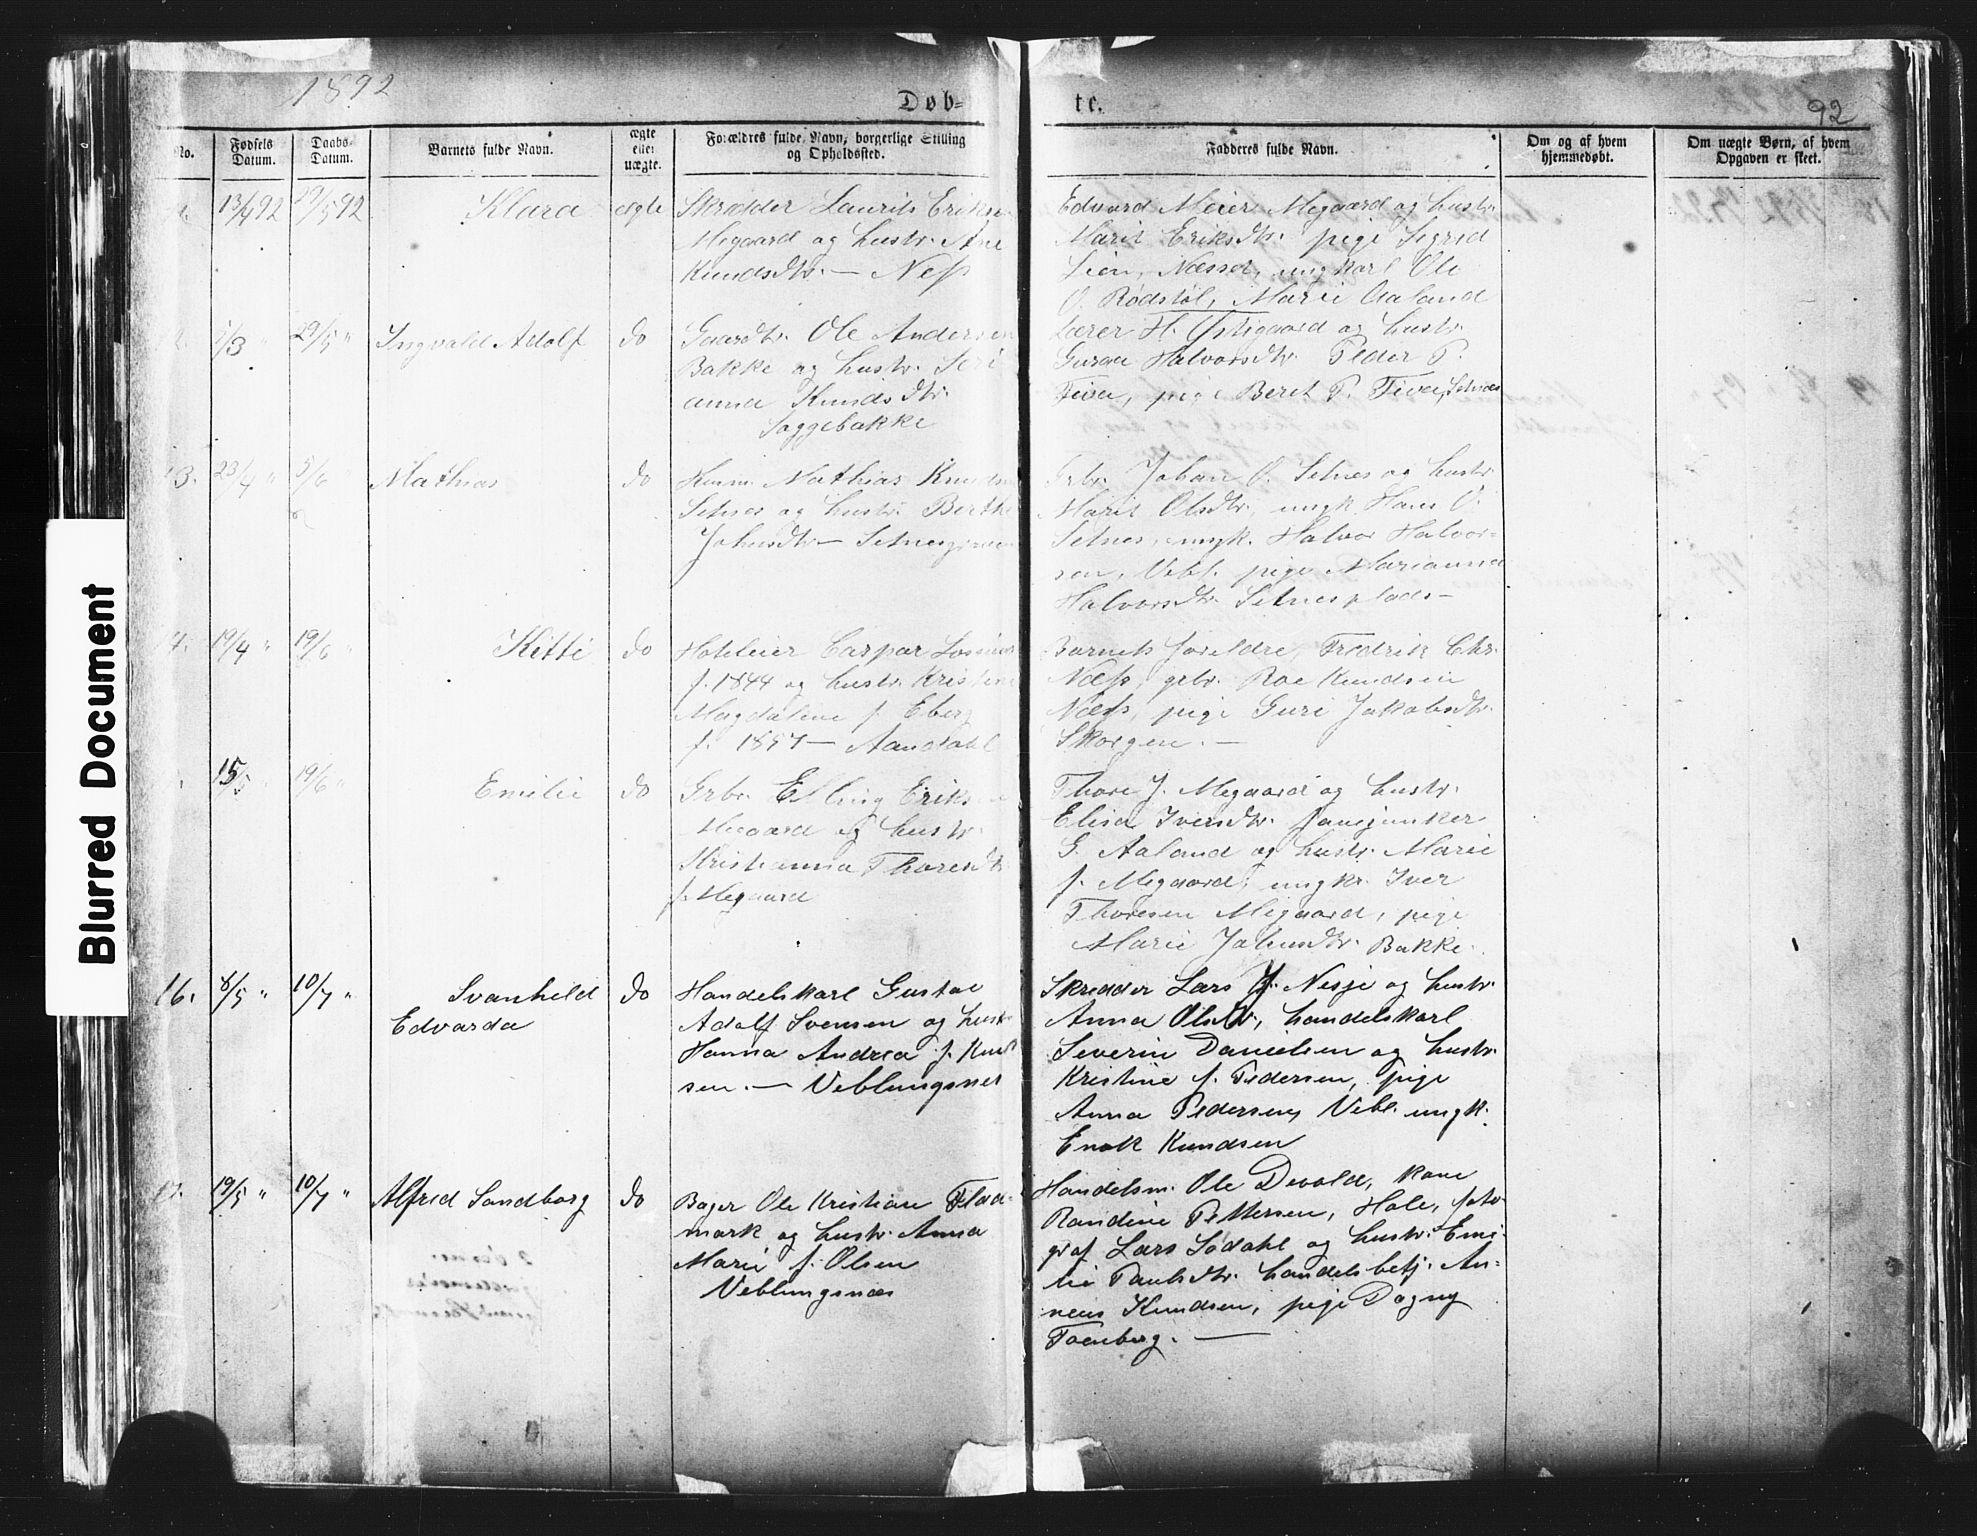 1892
Døb-
te.
92
No.
Fødsels Datum.
Daabs-Datum.
Barnets fulde Navn.
ægte eller uægte.
Forældres fulde Navn, borgerlige Stilling og Opholdssted.
Fadderes fulde Navn.
Om og af hvem hjemmedøbt.
Om uægte Børn, af hvem Opgaven er skeet.
13/4 92 29/5 92 Klara ægte
Skrædder Laurits Eriks
Megaard og hustr. Ane
Knudsdtr. — Nesś
Edvard Meier Megaard og hustr.
Marit Eriksdtr. pige Sigrid
Lien, Næsset, ungkarl Ole
O. Rødstøl, Marie Aaland
1/3 " 29/5 " Ingvald Adolf do
Gaardbr. Ole Andersen
Bakke og hustr. Seri
anna Knudsdtr.
Soggebakke
Lærer H. Østigaard og hustr.
Guroe Halvorsdtr. Peder P.
Fiva, pige Beret P. Fiva, Setnæs
13. 23/4 " 5/6 " Mathias do
Husm. Mathias Knuds
Setnes og hustr. Berthe
Johnsdtr. — Setnes
Grbr. Johan O. Setnes og hustr.
Marit Olsdtr., ungk. Hans O.
Setnes, ungk. Halvor Halvor-
sen, Vebl. pige Marianna
Halvorsdtr. Setnesplads —
14. 19/4 " 19/6 " Kitti do
Hoteleier Caspar Lossius
f. 1844 og hustr. Kristine
Magdalene f. Eberg
f. 1857 — Aandahl
Barnets foreldre, Fredrik Chr.
Næss, grbr. Roe Knudsen
Næss, pige Guri Jakobsdtr.
Skorgen. —
15/5 " 19/6 " Emilie do
Grbr. Elling Eriks
Megaard og hustr.
Kristianna Thoresdtr.
f. Megaard
Thore J. Megaard og hustr.
Elisa Iversdtr. fanejunker
G. Aaland og hustr. Marie
f. Megaard, ungkr. Iver
Thoresen Megaard, pige
Marie Johnsdtr. Bakke.
16. 8/5 " 10/7 " Svanheld do
Edvarda
Handelskarl Gustav
Adolf Svensen og hustr
Hanna Andrea f. Knud
sen. — Veblungsnes
Skredder Lars J. Nesje og hustr.
Anna Olsdtr., handelskarl
Severin Danielsen og hustr.
Kristine f. Pedersen, pige
Anna Pedersen, Vebl. ungk.
Enok Knudsen
17. 19/5 " 10/7 " Alfred Sandborg do
Bager Ole Kristian Flad-
mark og hustr. Anna
Marie f. Olsen
Veblungsnæs
Handelsm. Ole Devold, kone
Randine Pettersen, Hole, foto-
graf Lars Sødahl og hustr. Emi-
lie Paulsdtr. handelsbetj. An-
neus Knudsen, pige Dagny
Foenberg. —
Blurred Document